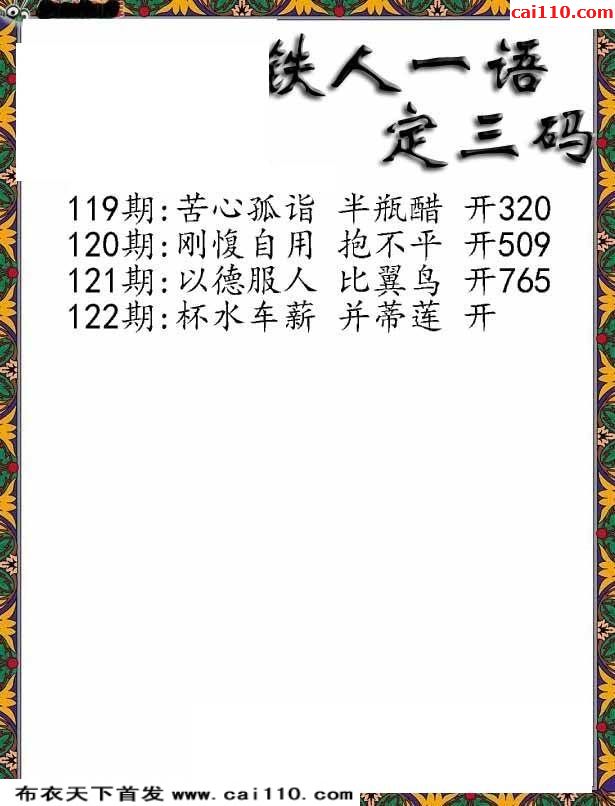 cai110.com
铁人一语
定三码
119期:苦心孤诣 半瓶醋 开320
120期:刚愎自用 抱不平 开509
121期:以德服人 比翼鸟 开765
122期:杯水车薪 并蒂莲 开
布衣天下首发 www.cai110.com